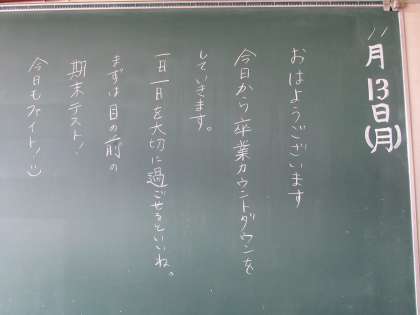 11月13日(月)
おはようございます
今日から卒業カウントダウンを
していきます。
一日一日を大切に過ごせるといいね。
まずは目の前の
期末テスト!
今日もファイト!!:)